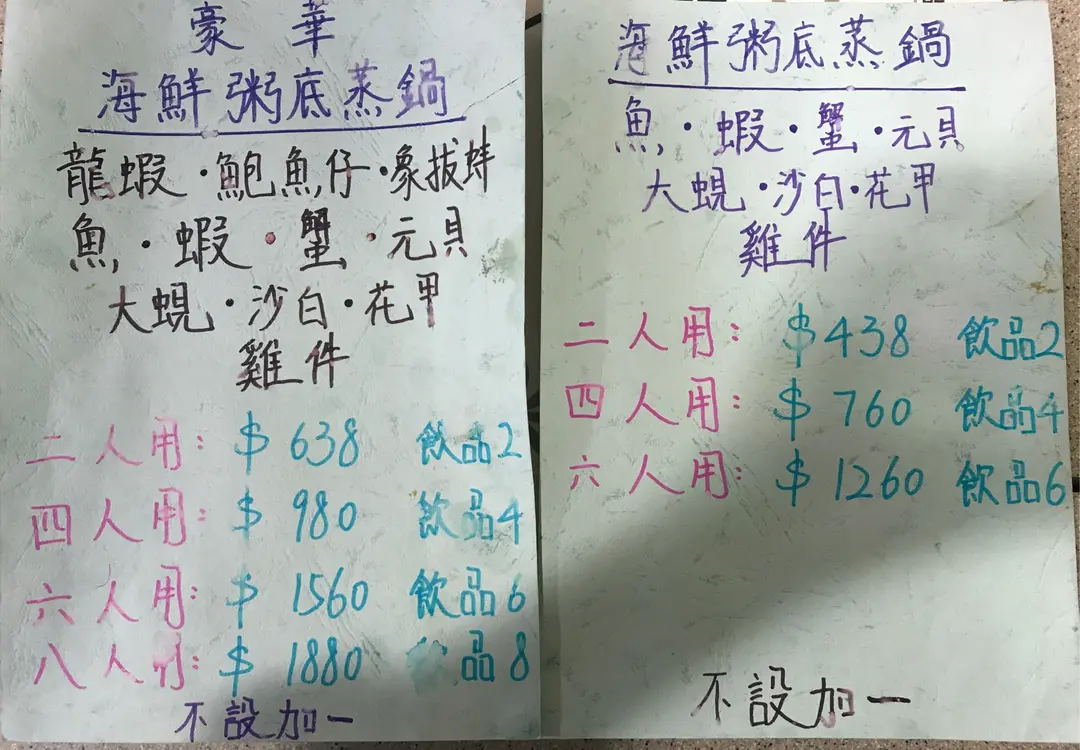 豪華
海鮮粥底蒸鍋
龍蝦·鮑魚仔·象拔蚌
魚·蝦·蟹·元貝
大蜆·沙白·花甲
雞件
二人用: $638 飲品2
四人用: $980 飲品4
六人用: $1560 飲品6
八人用: $1880 飲品8
不設加一
海鮮粥底蒸鍋
魚·蝦·蟹·元貝
大蜆·沙白·花甲
雞件
二人用: $438 飲品2
四人用: $760 飲品4
六人用: $1260 飲品6
不設加一